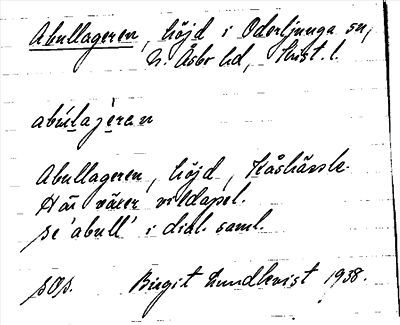 Abullageren, höjd i Oderljunga sn,
N. Åsbo hd, Krist. l.
abúlajèran
Abullageren, höjd, Kåshärsle.
Här växer vildapel.
se 'abull' i dial. saml.
Birgit Lundkvist 1938.